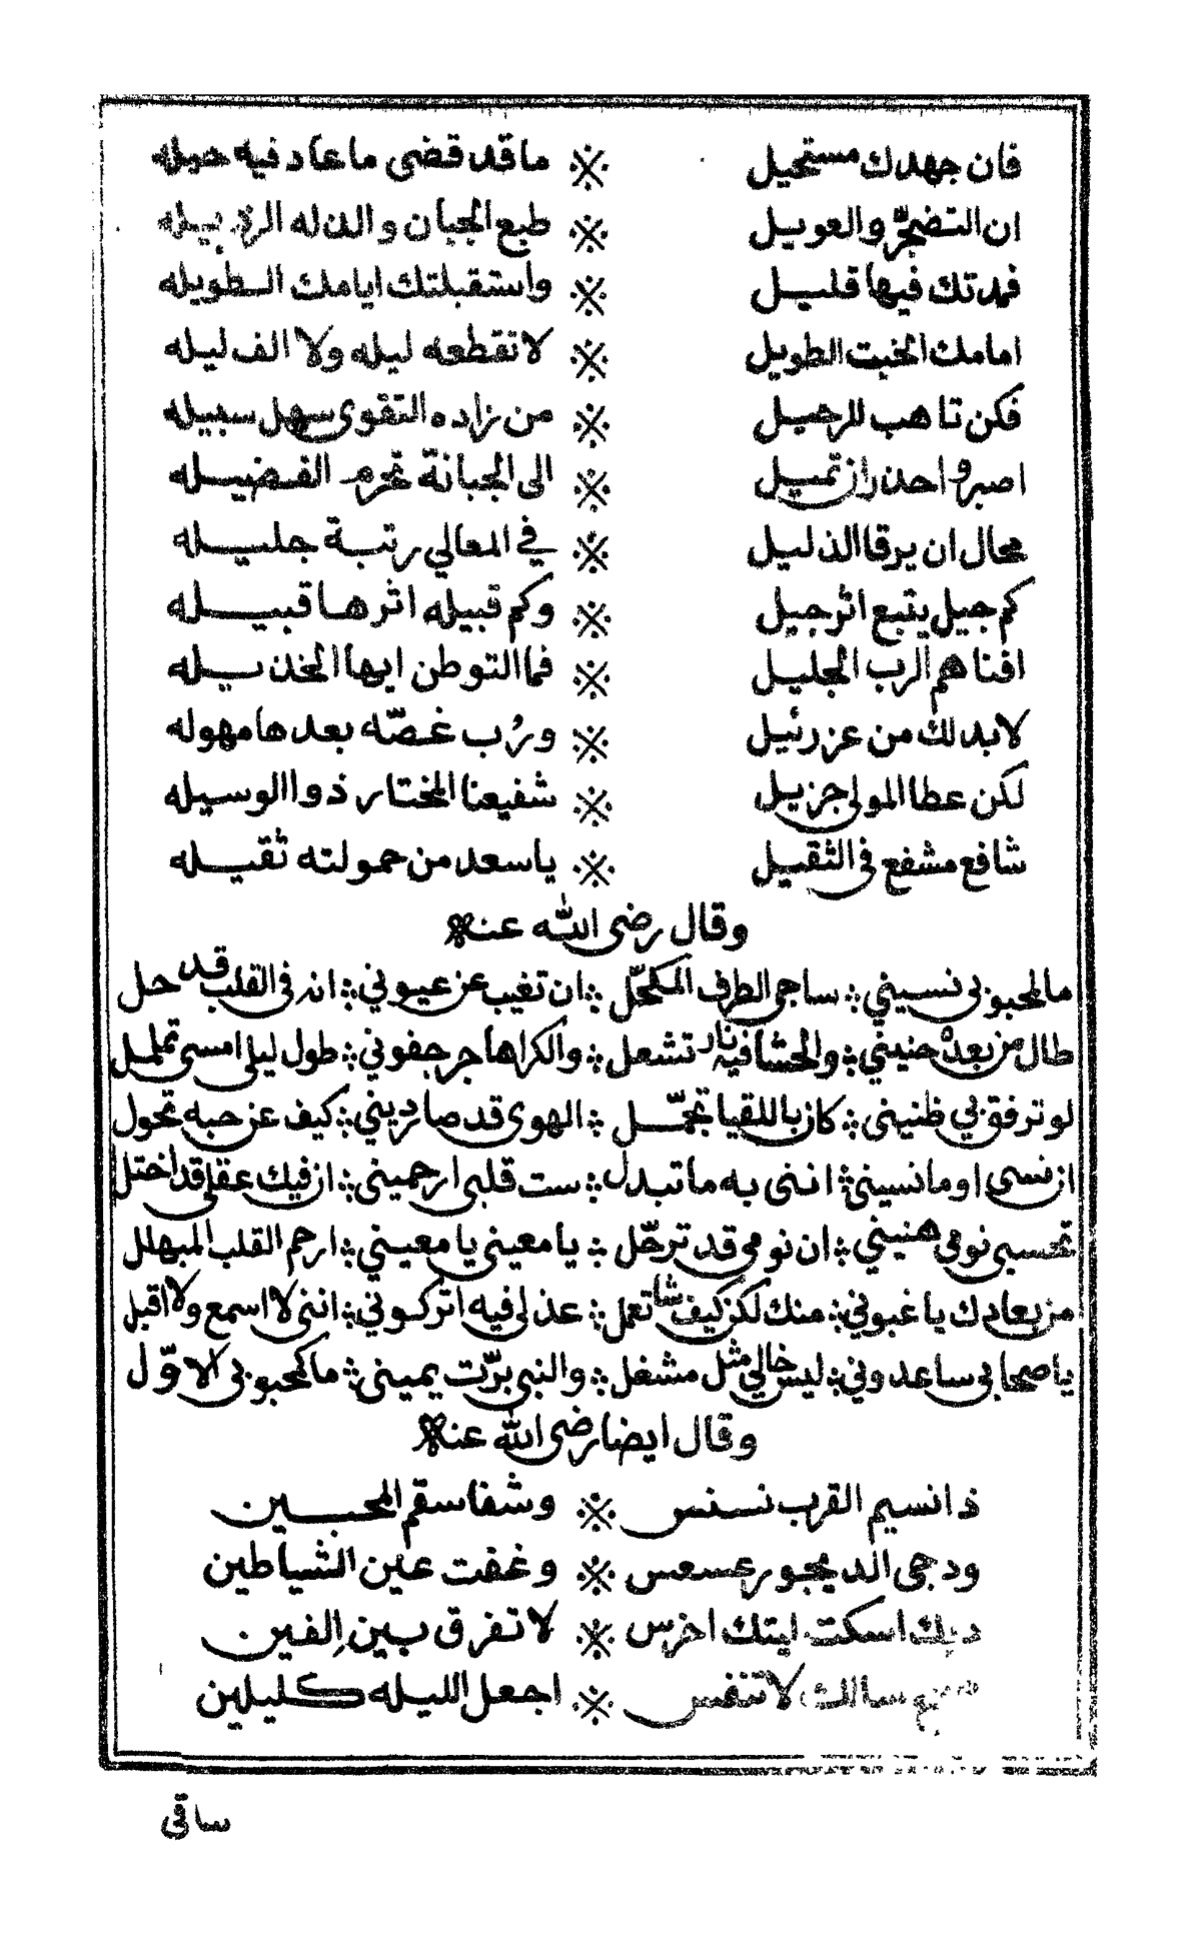 فان جهدك مستحيل ※ ما قد قضى ما عاد فيه حيله
ان التضجّر والعويل ※ طبع الجبان والذله الرذيله
فمدتك فيها قليل ※ واستقبلتك ايامك الطويله
امامك الخبت الطويل ※ لا تقطعه ليله ولا الف ليله
فكن تاهب للرحيل ※ من زاده التقوى سهل سبيله
اصبر واحذر ان تميل ※ الى الجبانة تحرم الفضيله
محال ان يرقا الذليل ※ في المعالي رتبة جليله
كم جيل يتبع اثر جيل ※ وكم قبيله اثرها قبيله
افناهم الرب الجليل ※ فما التوطن ايها الخذيله
لا بد لك من عزرئيل ※ ورُب غصّه بعدها مهوله
لكن عطا المولى جزيل ※ شفيعنا المختار ذو الوسيله
شافع مشفع في الثقيل ※ يا سعد من حمولته ثقيله
وقال رضى الله عنه
ما لمحبوبى نسيني ∴ ساجى الطرف المكحّل ∴ ان تغيب عن عيوني ∴ انه فى القلب قد حل
طال من بعده حنيني ∴ والحشا فيه نار تشعل ∴ والكرا هاجر جفوني ∴ طول ليلى امسى تململ
لو ترفق بي ظنينى ∴ كان باللقيا تجمّل ∴ الهوى قد صار دينيُ ∴ كيف عن حبه تحول
ان نسى او ما نسيني ∴ اننى به ما تبدل ∴ ست قلبى ارحمينى ∴ ان فيك عقلى قد اختل
تحسبى نومى هنيني ∴ ان نومى قد ترحّل ∴ يا معينى يا معيني ∴ ارحم القلب المبهلل
من بعادك يا غبوني ∴ منك لكن كيف شا تعمل ∴ عذلى فيه اتركوني ∴ اننى لا اسمع ولا اقبل
يا صحابى ساعدوني ∴ ليس خالي مثل مشغل ∴ والنبى برّت يمينى ∴ ما كمحبوبى الاوّل
وقال ايضا رضى الله عنه
ذا نسيم القرب نسنس ※ وشفا سقم المحبين
ودجى الديجور عسعس ※ وغفت عين الشياطين
ديك اسكت ليتك اخرس ※ لا تفرق بين الفين
سالك لا تنفس ※ اجعل الليله كليلين
ساقى